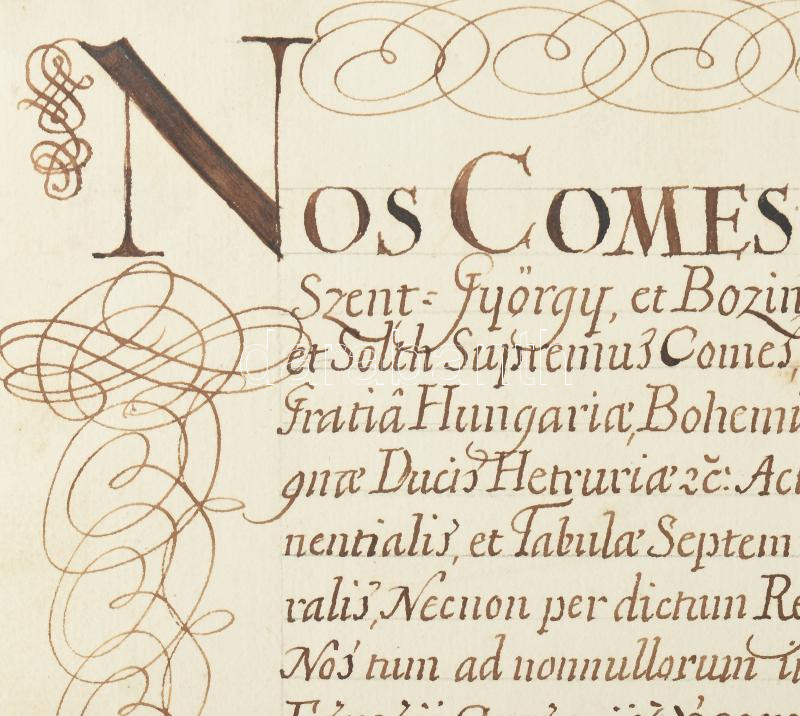 NOS COMES
Szent= György, et Bozin
et Solth Supremus Comes,
gratiâ Hungariæ, Bohemi
gnæ Ducis Hetruriæ &c: Act
nentialis, et Tabulæ Septem
ralis, Necnon per dictum Re
Nos tum ad nonnullorum
darabanth